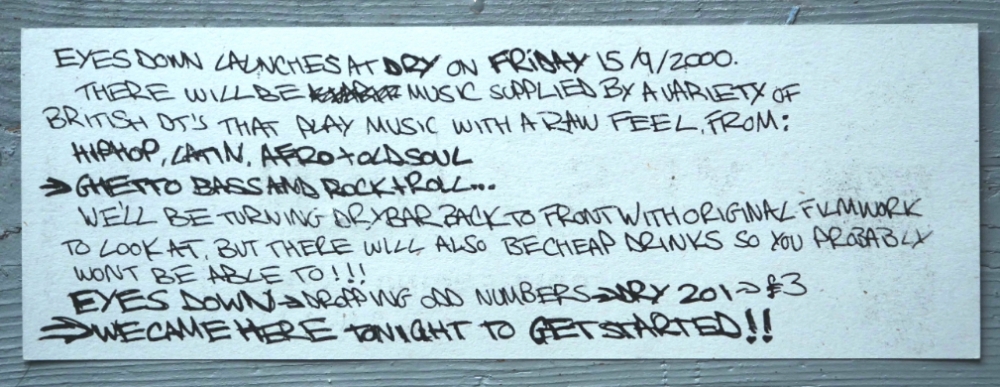 EYES DOWN LAUNCHES AT DRY ON FRIDAY 15/9/2000.
THERE WILL BE MUSIC SUPPLIED BY A VARIETY OF
BRITISH DJ'S THAT PLAY MUSIC WITH A RAW FEEL, FROM:
HIPHOP, LATIN, AFRO + OLD SOUL
→ GHETTO BASS AND ROCK + ROLL...
WE'LL BE TURNING DRYBAR BACK TO FRONT WITH ORIGINAL FILMWORK
TO LOOK AT, BUT THERE WILL ALSO BE CHEAP DRINKS SO YOU PROBABLY
WONT BE ABLE TO!!!
EYES DOWN → DROPPING ODD NUMBERS → DRY 201 → £3
→ WE CAME HERE TONIGHT TO GET STARTED!!